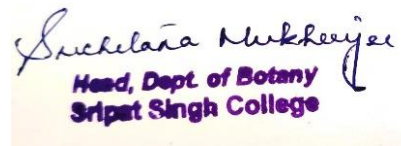 Suchelaña Mukherjee
Head, Dept. of Botany
Sripat Singh College